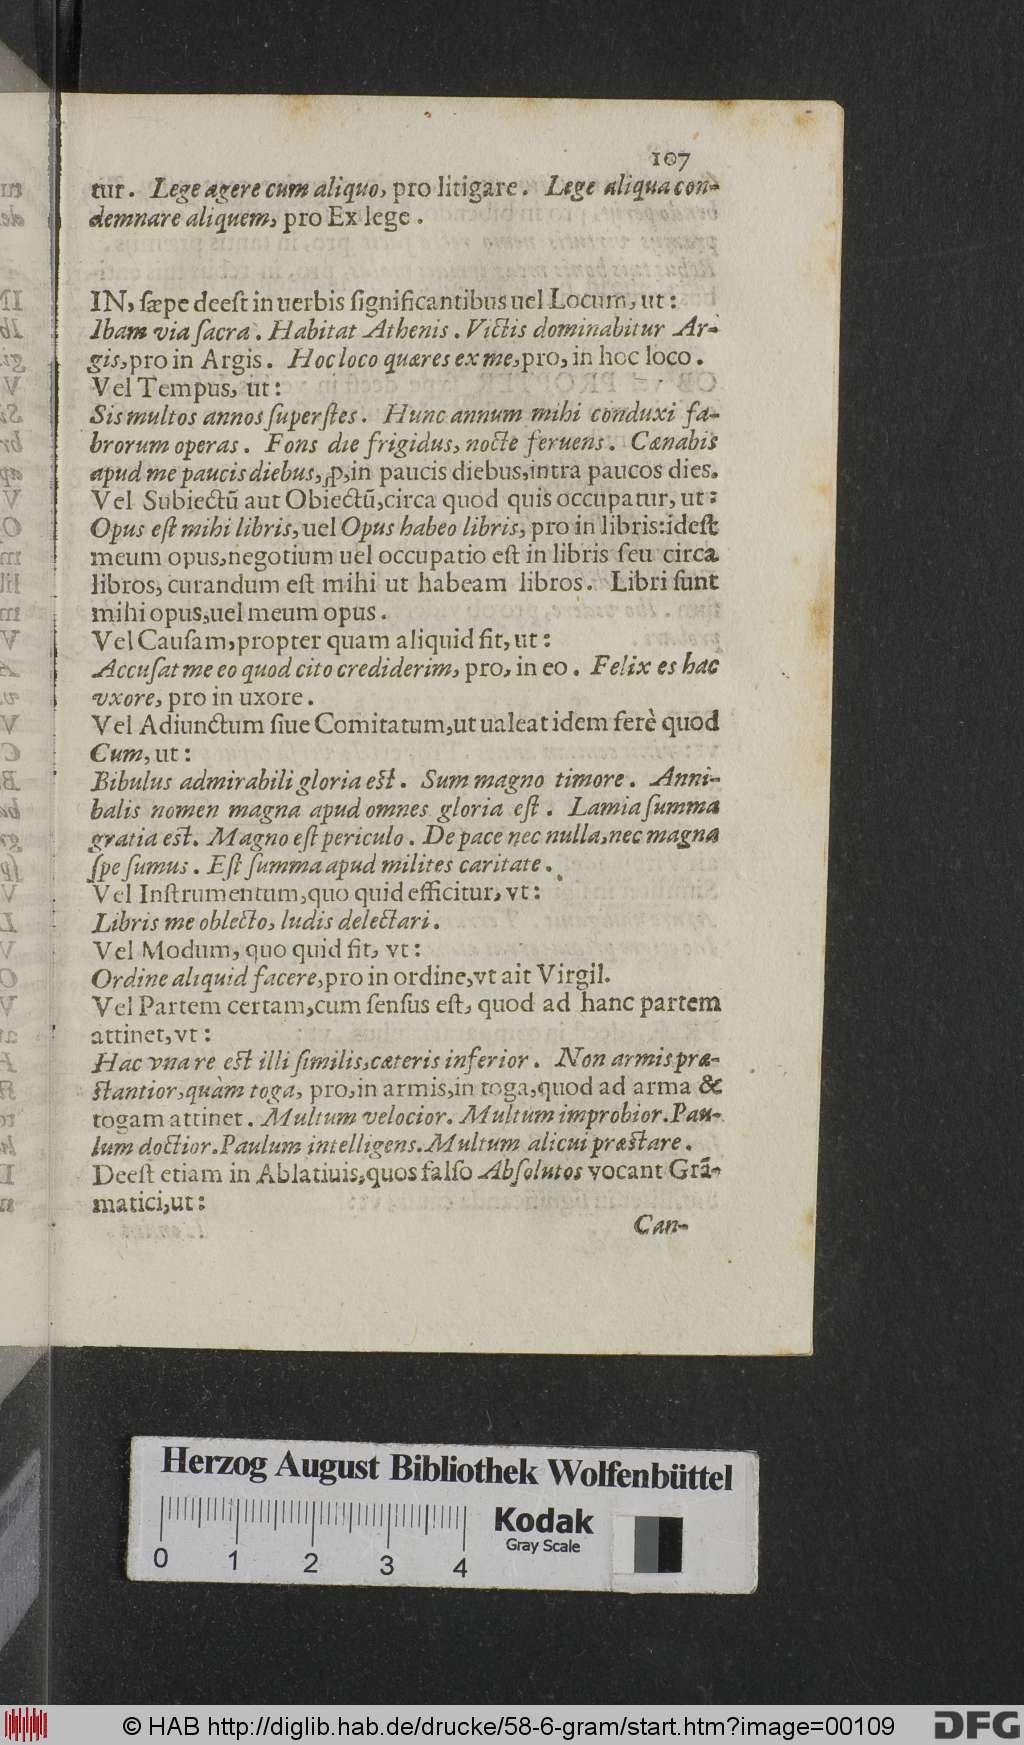 107
tur. Lege agere cum aliquo, pro litigare. Lege aliqua con-
demnare aliquem, pro Ex lege.
IN, sæpe deest in uerbis significantibus uel Locum, ut:
Ibam via sacra. Habitat Athenis. Victis dominabitur Ar-
gis, pro in Argis. Hoc loco quæres ex me, pro, in hoc loco.
Vel Tempus, ut:
Sis multos annos superstes. Hunc annum mihi conduxi fa-
brorum operas. Fons die frigidus, nocte feruens. Cænabis
apud me paucis diebus, ꝓ, in paucis diebus, intra paucos dies.
Vel Subiectū aut Obiectū, circa quod quis occupatur, ut:
Opus est mihi libris, uel Opus habeo libris, pro in libris: idest
meum opus, negotium uel occupatio est in libris seu circa
libros, curandum est mihi ut habeam libros. Libri sunt
mihi opus, uel meum opus.
Vel Causam, propter quam aliquid fit, ut:
Accusat me eo quod cito crediderim, pro, in eo. Felix es hac
vxore, pro in uxore.
Vel Adiunctum siue Comitatum, ut ualeat idem ferè quod
Cum, ut:
Bibulus admirabili gloria est. Sum magno timore. Anni-
balis nomen magna apud omnes gloria est. Lamia summa
gratia est. Magno est periculo. De pace nec nulla, nec magna
spe sumus. Est summa apud milites caritate.
Vel Instrumentum, quo quid efficitur, vt:
Libris me oblecto, ludis delectari.
Vel Modum, quo quid fit, vt:
Ordine aliquid facere, pro in ordine, vt ait Virgil.
Vel Partem certam, cum sensus est, quod ad hanc partem
attinet, vt:
Hac vna re est illi similis, cæteris inferior. Non armis præ-
stantior, quàm toga, pro, in armis, in toga, quod ad arma &
togam attinet. Multum velocior. Multum improbior. Pau-
lum doctior. Paulum intelligens. Multum alicui præstare.
Deest etiam in Ablatiuis, quos falso Absolutos vocant Grā-
matici, ut:
Can-
Herzog August Bibliothek Wolfenbüttel
Kodak
Gray Scale
0 1 2 3 4
© HAB http://diglib.hab.de/drucke/58-6-gram/start.htm?image=00109
DFG